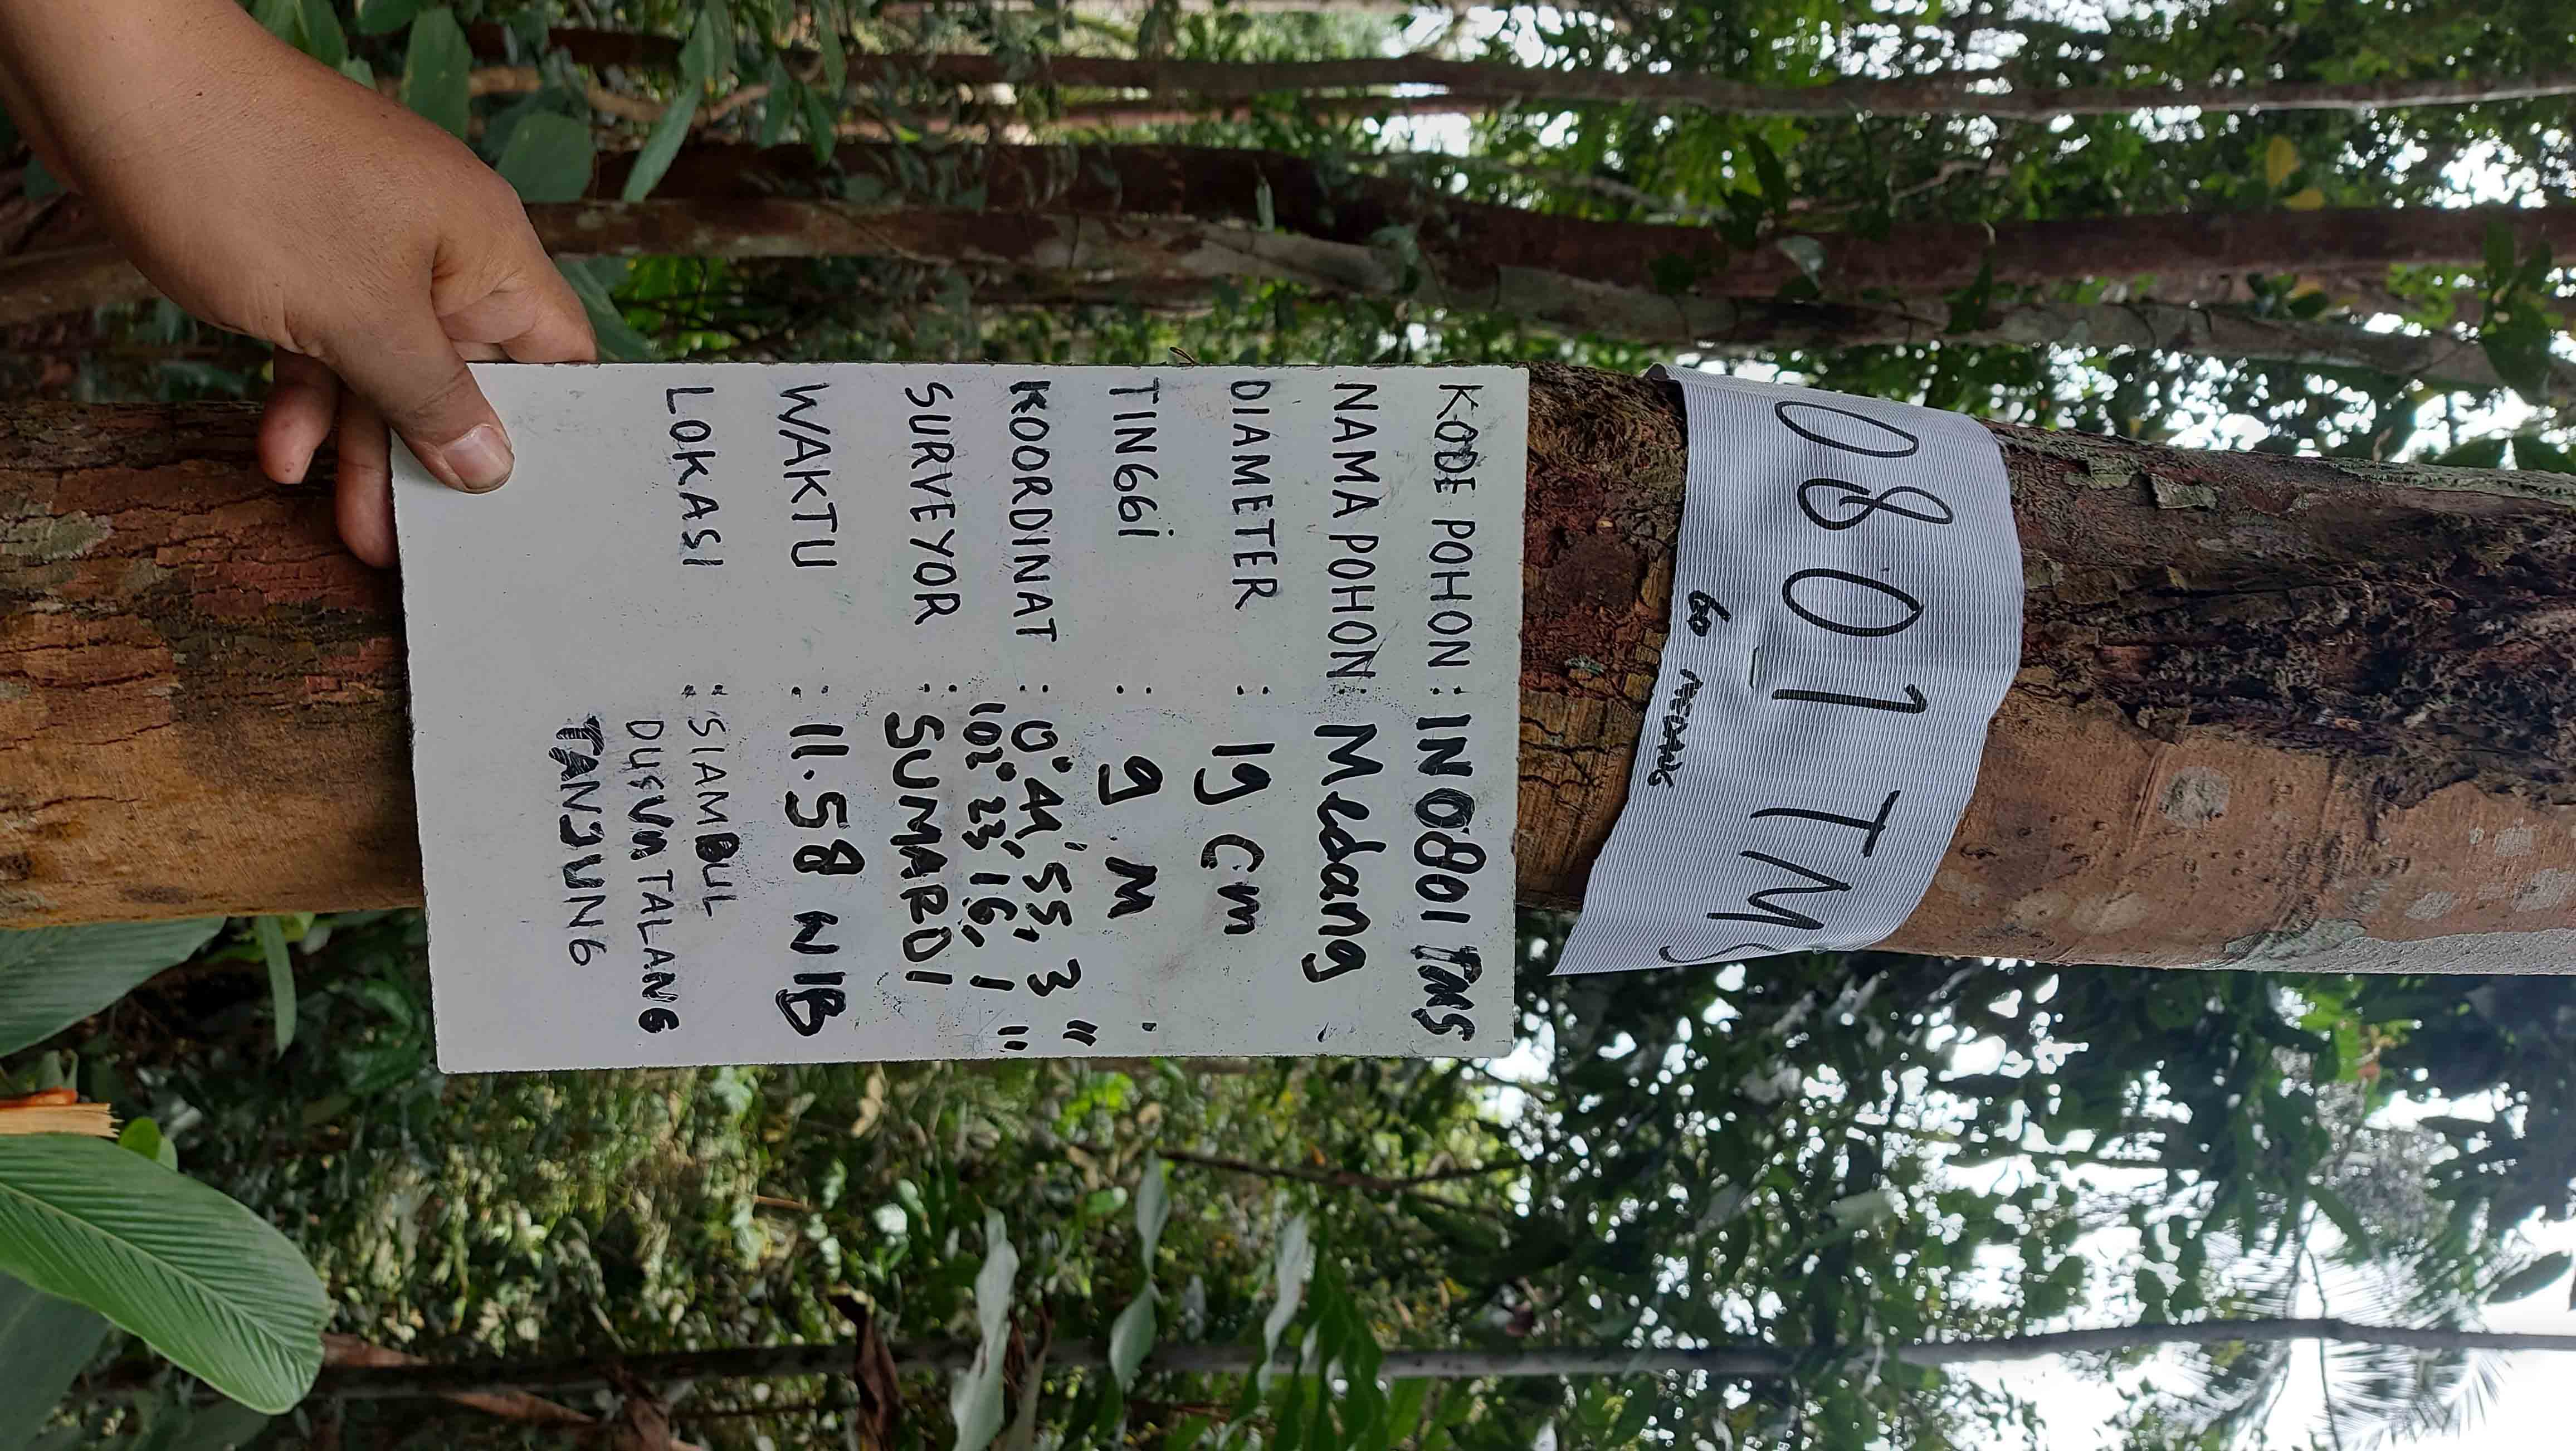 0801 TMS
60 MEDANG
KODE POHON : IN0801 TMS
NAMA POHON : Medang
DIAMETER : 19 cm
TINGGI : 9 M
KOORDINAT : 0° 44' 55, 3"
102° 23' 16, 1"
SURVEYOR : SUMARDI
WAKTU : 11.58 WIB
LOKASI : SIAMBUL
DUSUN TALANG
TANJUNG